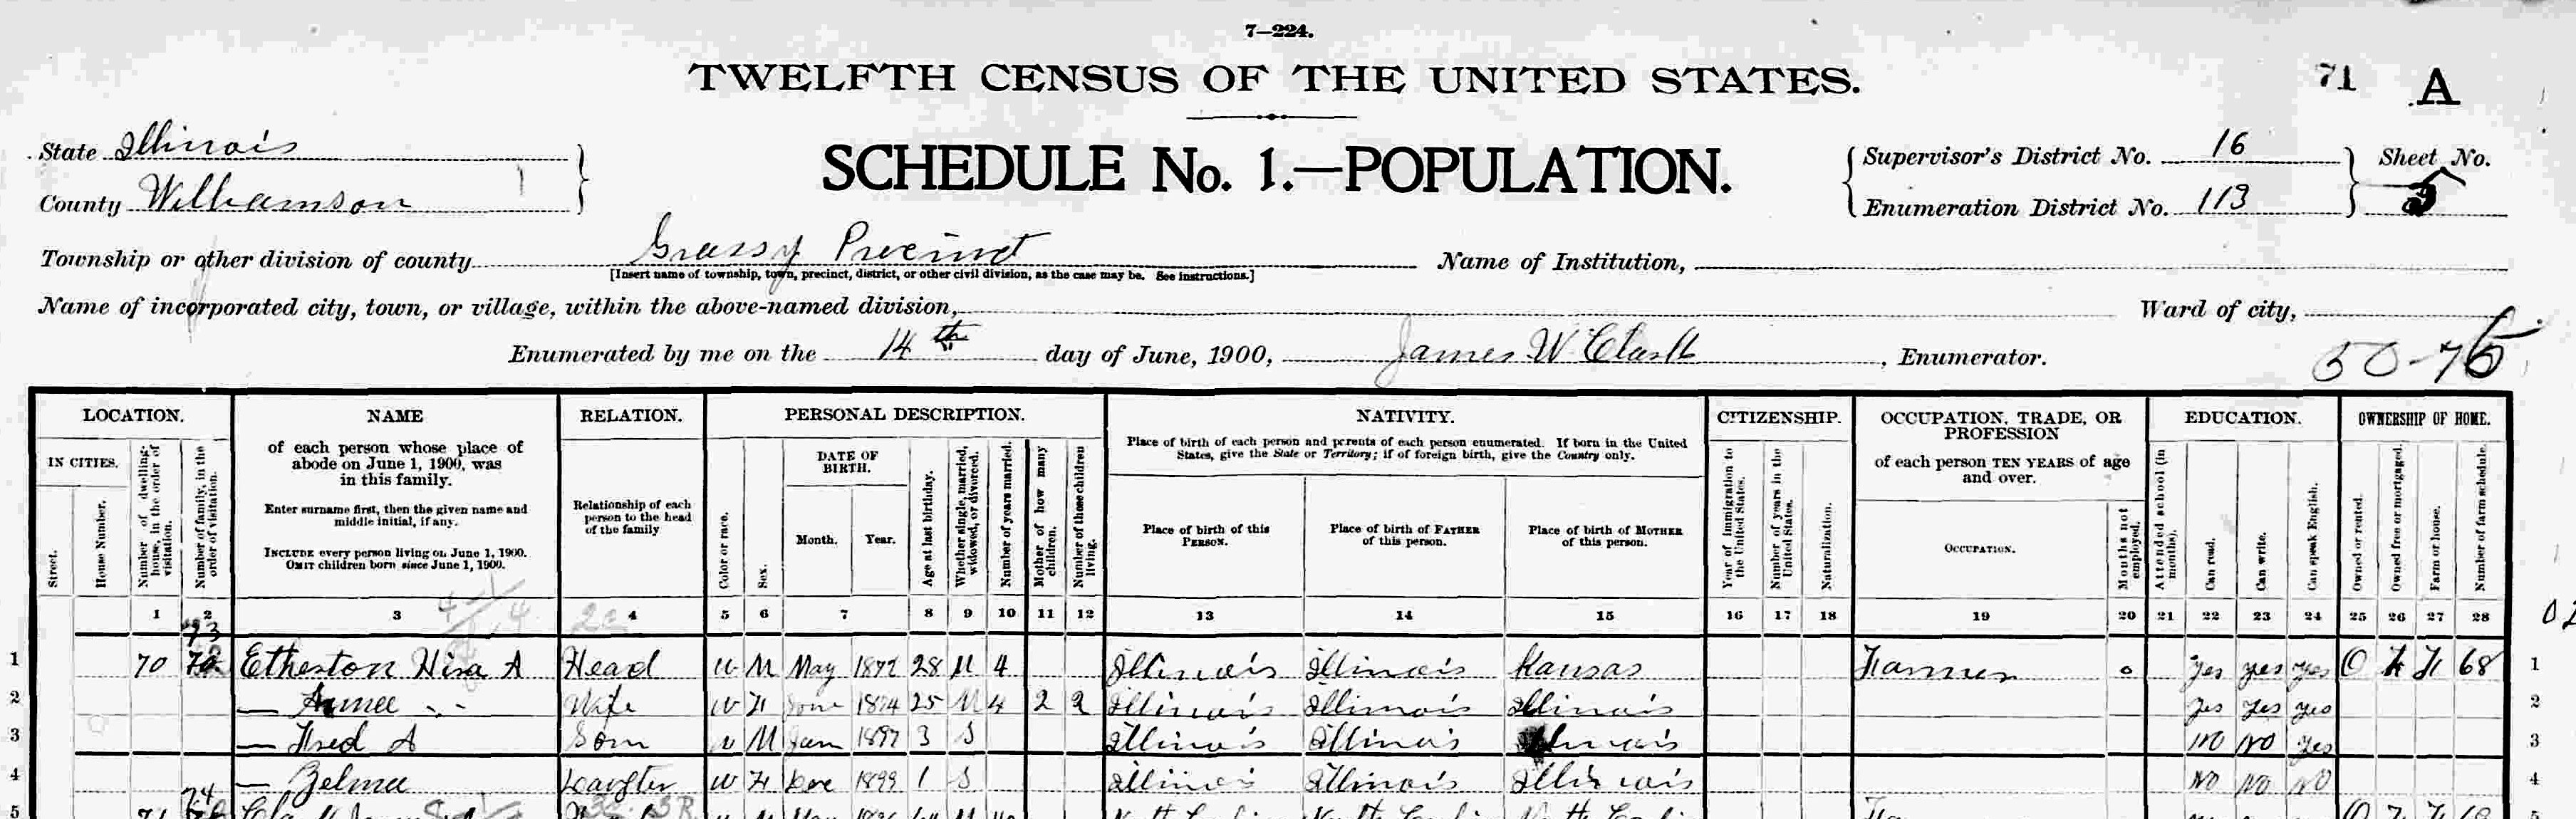 7—224.
TWELFTH CENSUS OF THE UNITED STATES.
71 A
State Illinois
County Williamson
SCHEDULE No. 1.—POPULATION.
Supervisor's District No. 16
Enumeration District No. 113
Sheet No.
5
Township or other division of county Grassy Precinct
[Insert name of township, town, precinct, district, or other civil division, as the case may be. See instructions.]
Name of Institution,
Name of incorporated city, town, or village, within the above-named division,
Ward of city,
Enumerated by me on the 14th day of June, 1900, James W Clark, Enumerator.
50-75
LOCATION.
IN CITIES.
Street.
House Number.
Number of dwelling-house, in the order of visitation.
Number of family, in the order of visitation.
NAME
of each person whose place of abode on June 1, 1900, was in this family.
Enter surname first, then the given name and middle initial, if any.
INCLUDE every person living on June 1, 1900.
OMIT children born since June 1, 1900.
RELATION.
Relationship of each person to the head of the family
PERSONAL DESCRIPTION.
Color or race.
Sex.
DATE OF BIRTH.
Month.
Year.
Age at last birthday.
Whether single, married, widowed, or divorced.
Number of years married.
Mother of how many children.
Number of these children living.
NATIVITY.
Place of birth of each person and parents of each person enumerated. If born in the United States, give the State or Territory; if of foreign birth, give the Country only.
Place of birth of this PERSON.
Place of birth of FATHER of this person.
Place of birth of MOTHER of this person.
CITIZENSHIP.
Year of immigration to the United States.
Number of years in the United States.
Naturalization.
OCCUPATION, TRADE, OR PROFESSION
of each person TEN YEARS of age and over.
OCCUPATION.
Months not employed.
EDUCATION.
Attended school (in months).
Can read.
Can write.
Can speak English.
OWNERSHIP OF HOME.
Owned or rented.
Owned free or mortgaged.
Farm or house.
Number of farm schedule.
1 2 3 4 5 6 7 8 9 10 11 12 13 14 15 16 17 18 19 20 21 22 23 24 25 26 27 28
1 70 73 Etheston Hira A Head W M May 1872 28 M 4 Illinois Illinois Kansas Farmer 0 yes yes yes O F F 68 1
2 — Wife W F June 1874 25 M 4 2 2 Illinois Illinois Illinois yes yes yes 2
3 — Fred A Son W M Jan 1897 3 S Illinois Illinois Illinois No No yes 3
4 — Zelma Daughter W F Dec 1899 1 S Illinois Illinois Illinois No No No 4
5 74 5